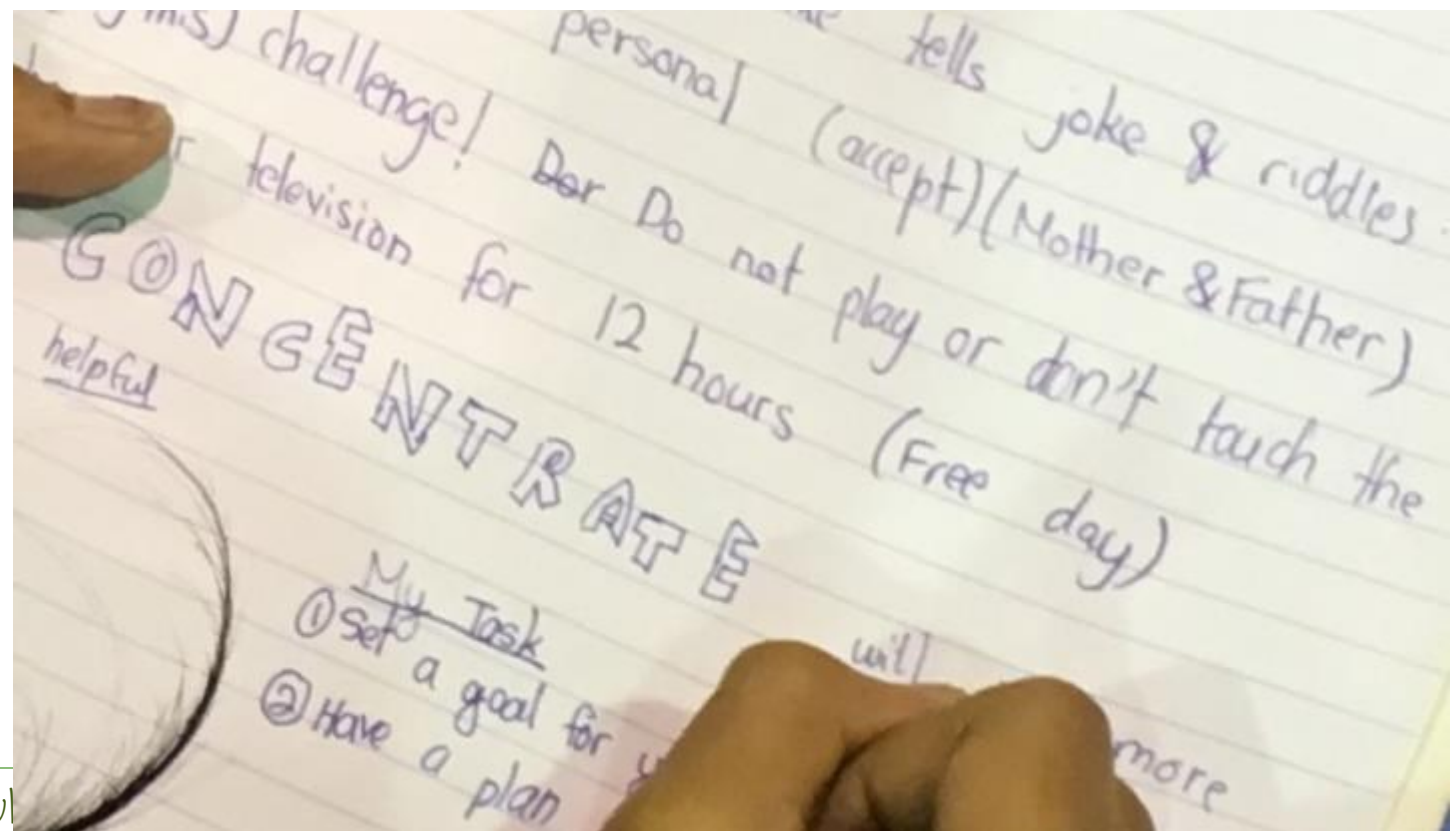 tells joke & riddles.
personal (accept)(Mother & Father)
challenge! Do not play or don't touch the
television for 12 hours (Free day)
CONCENTRATE
helpful
My Task
① Set a goal for
will
② Have a plan
more